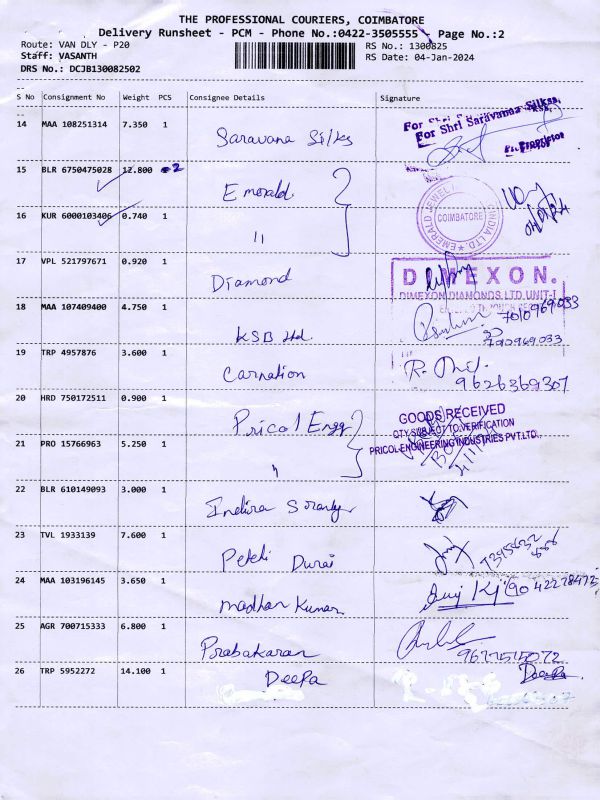 THE PROFESSIONAL COURIERS, COIMBATORE
Delivery Runsheet - PCM - Phone No.:0422-3505555 Page No.:2
Route: VAN DLY - P20 RS No.: 1300825
Staff: VASANTH RS Date: 04-Jan-2024
DRS No.: DCJB130082502
S No Consignment No Weight PCS Consignee Details Signature
14 MAA 108251314 7.350 1 Saravana Silks For Shri Saravanaa Silkss,
Proprietor
15 BLR 6750475028 12.800 2 Emerald
EMERALD JEWEL INDIA LTD. COIMBATORE
16 KUR 6000103406 0.740 1 "
17 VPL 521797671 0.920 1 Diamond DIMEXON.
DIMEXON DIAMONDS LTD UNIT-I
18 MAA 107409400 4.750 1 KSB Ltd. 7010969033
7010969033
19 TRP 4957876 3.600 1 Carnation
9626369307
20 HRD 750172511 0.900 1 Pricol Engg GOODS RECEIVED
QTY SUBJECT TO VERIFICATION
21 PRO 15766963 5.250 1 " PRICOL ENGINEERING INDUSTRIES PVT.LTD.,
22 BLR 610149093 3.000 1 Indira
23 TVL 1933139 7.600 1 Durai
24 MAA 103196145 3.650 1 Madhan Kumar
25 AGR 700715333 6.800 1 Prabakaran
26 TRP 5952272 14.100 1 Deepa Deepa